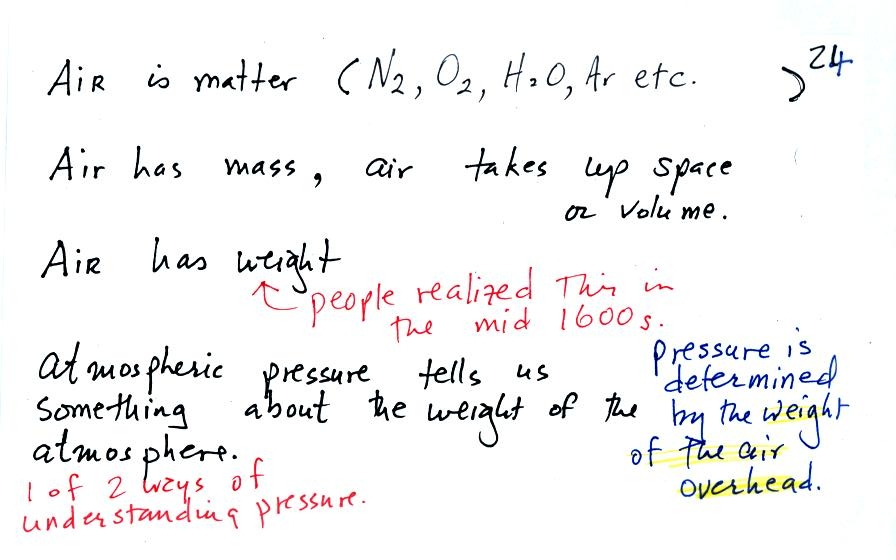 Air is matter (N2, O2, H2O, Ar etc.
24
Air has mass, air takes up space
or volume.
Air has weight
people realized This in
the mid 1600s.
atmospheric pressure tells us
something about the weight of the
atmosphere.
1 of 2 ways of
understanding pressure.
pressure is
determined
by the weight
of the air
overhead.